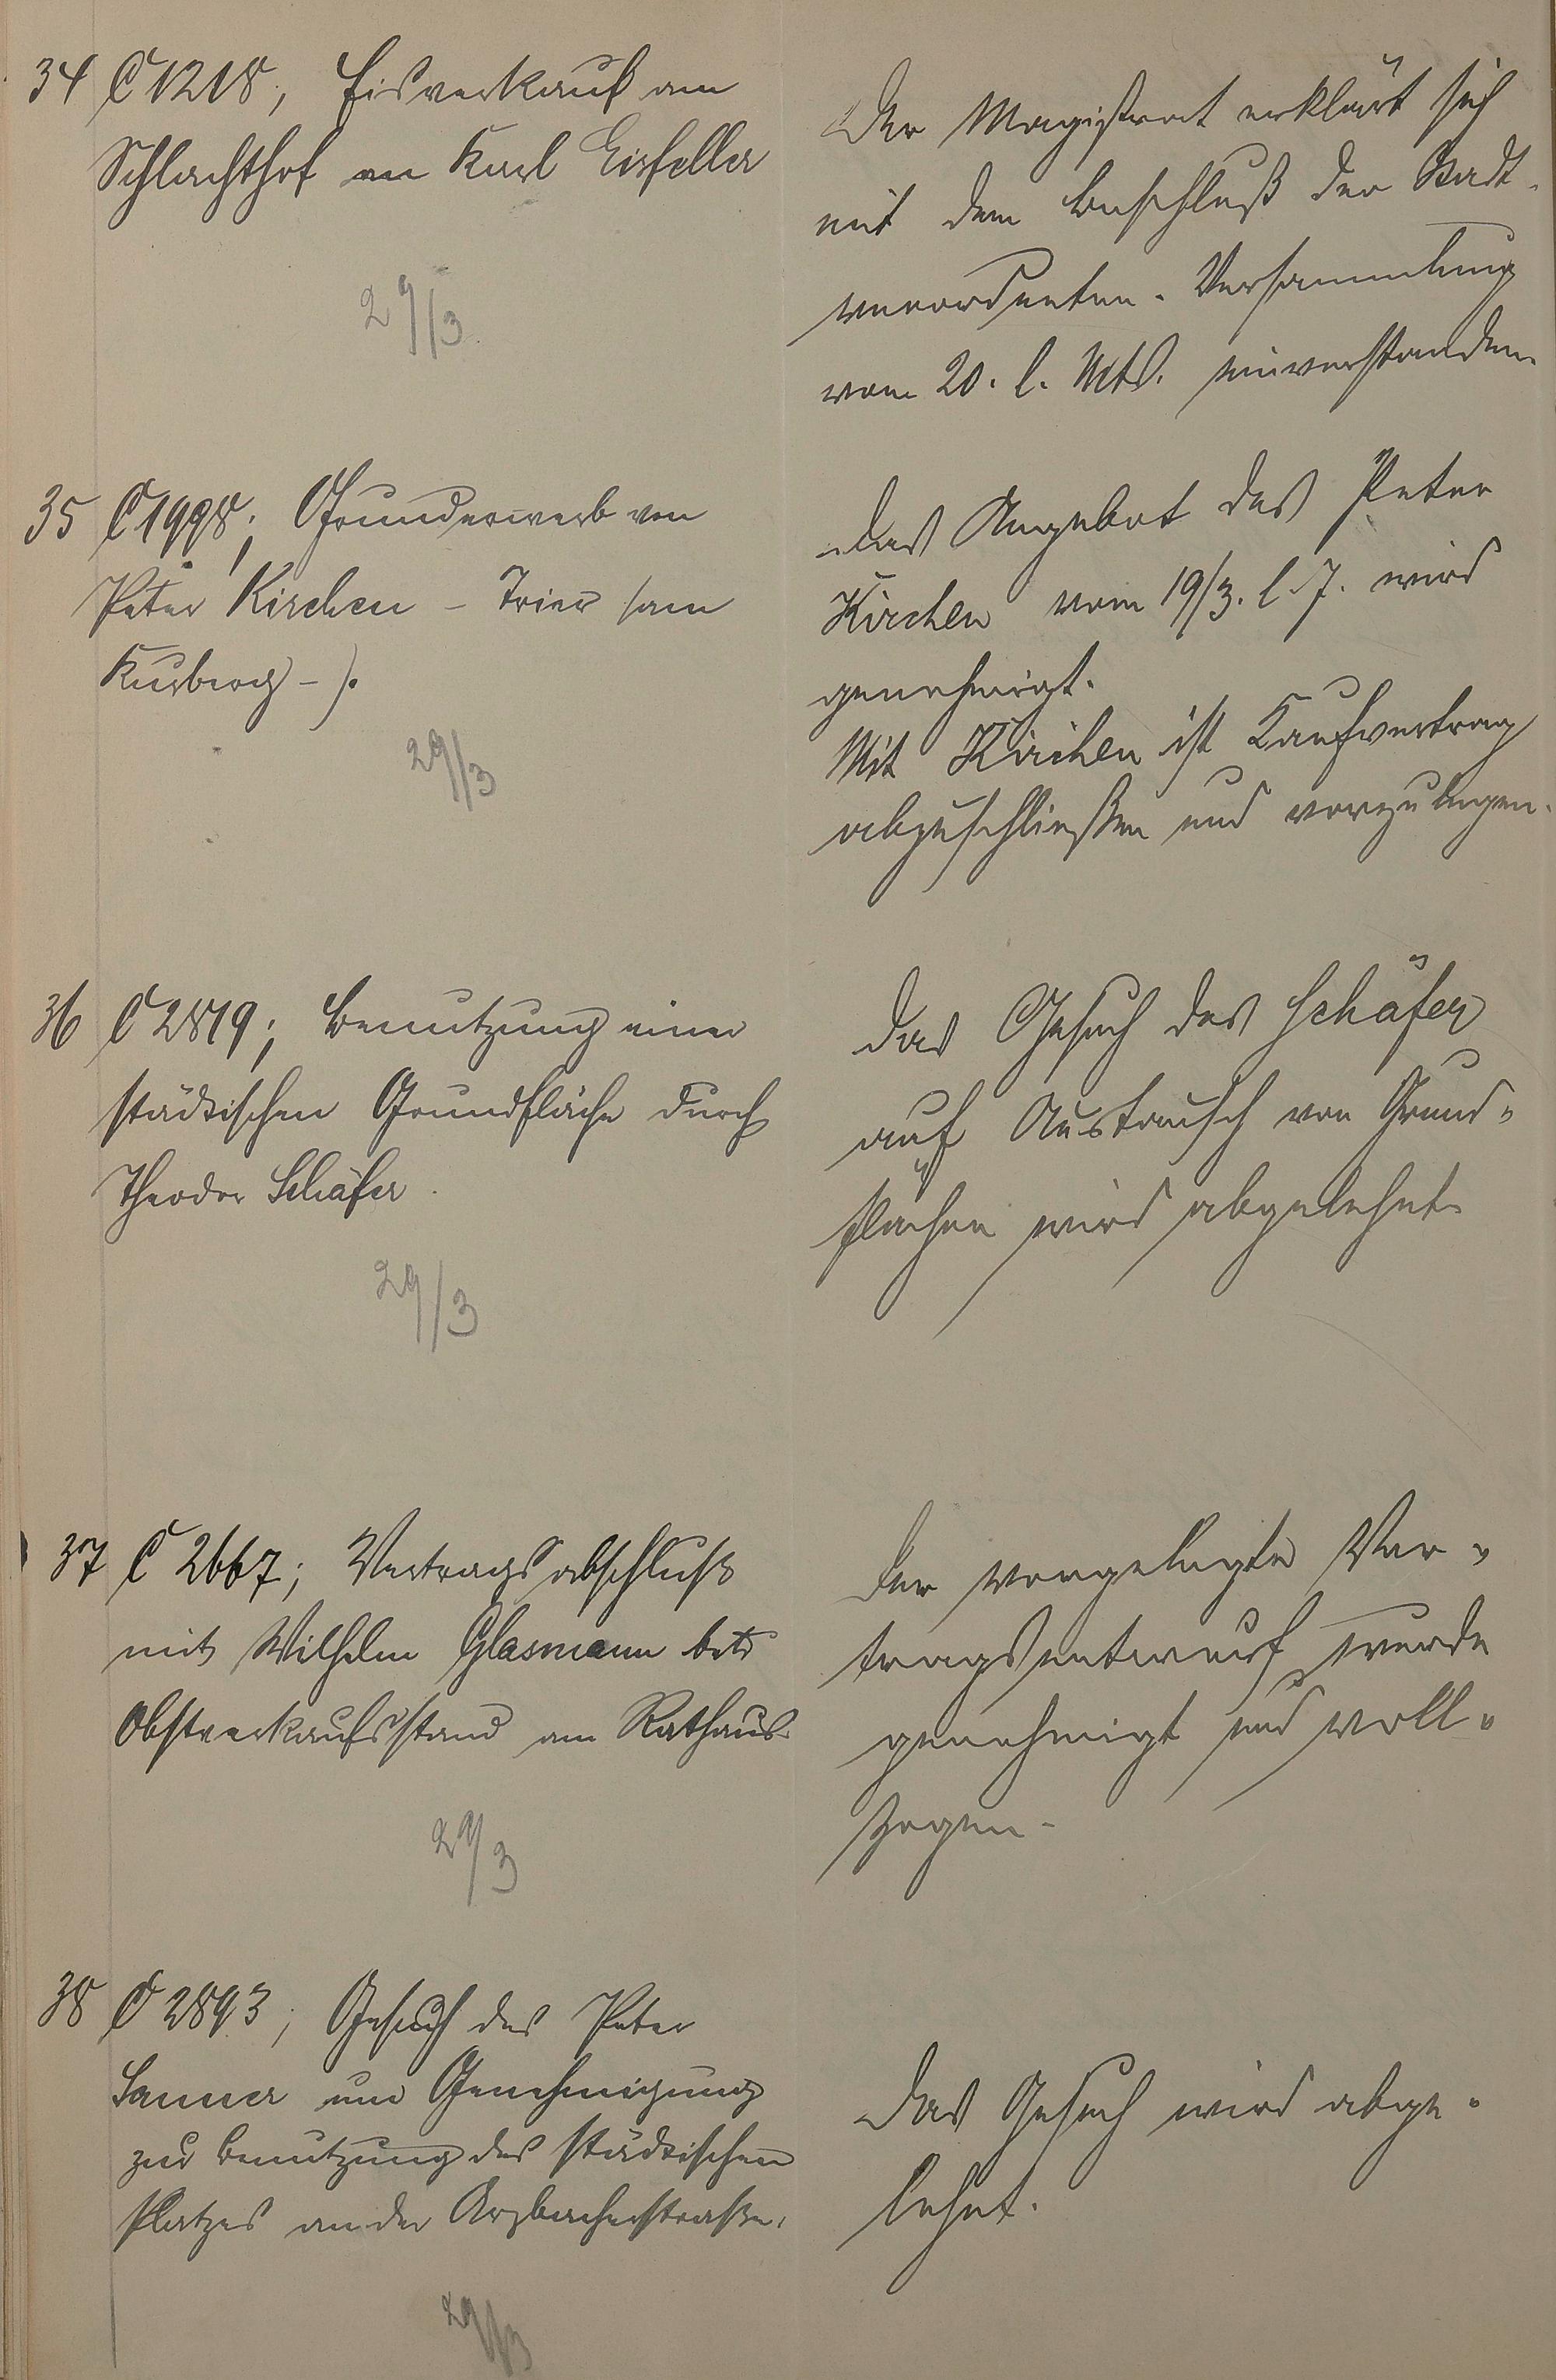 34 C 1218; Eisverkauf am
Schlachthof an Karl Eisfeller
29/3.
Der Magistrat erklärt sich
mit dem Beschluß der Stadt-
verordneten-Versammlung
vom 20. l. Mts. einverstanden.
35 C 1998; Grunderwerb von
Peter Kirchen - Trier (am
29/3
Das Angebot des Peter
Kirchen vom 19/3. l. J. wird
genehmigt.
Mit Kirchen ist Kaufvertrag
abzuschließen und vorzulegen.
36 C 2819; Benutzung einer
städtischen Grundfläche durch
Theodor Schäfer.
29/3
Das Gesuch des Schäfer
auf Austausch von Grund-
flächen wird abgelehnt.
37 C 2667; Vertragsabschluß
mit Wilhelm Glasmann betr
Obstverkaufsstand am Rathaus.
29/3
Der vorgelegte Ver-
tragsentwurf wurde
genehmigt und voll-
zogen.
38 C 2893; Gesuch des Peter
Sanner um Genehmigung
zur Benutzung des städtischen
Platzes an der Arzbacherstraße.
29/3
Das Gesuch wird abge-
lehnt.